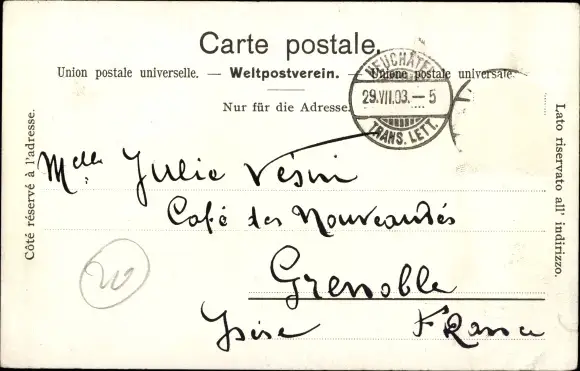 Carte postale.
Union postale universelle. — Weltpostverein. — Unione postale universale.
Nur für die Adresse.
Côté réservé à l'adresse.
Lato riservato all' indirizzo.
NEUCHÂTEL
29.VII.03. — 5
TRANS. LETT.
Melle Julie Vésin
Café des Nouveautés
Grenoble
Isère France
20